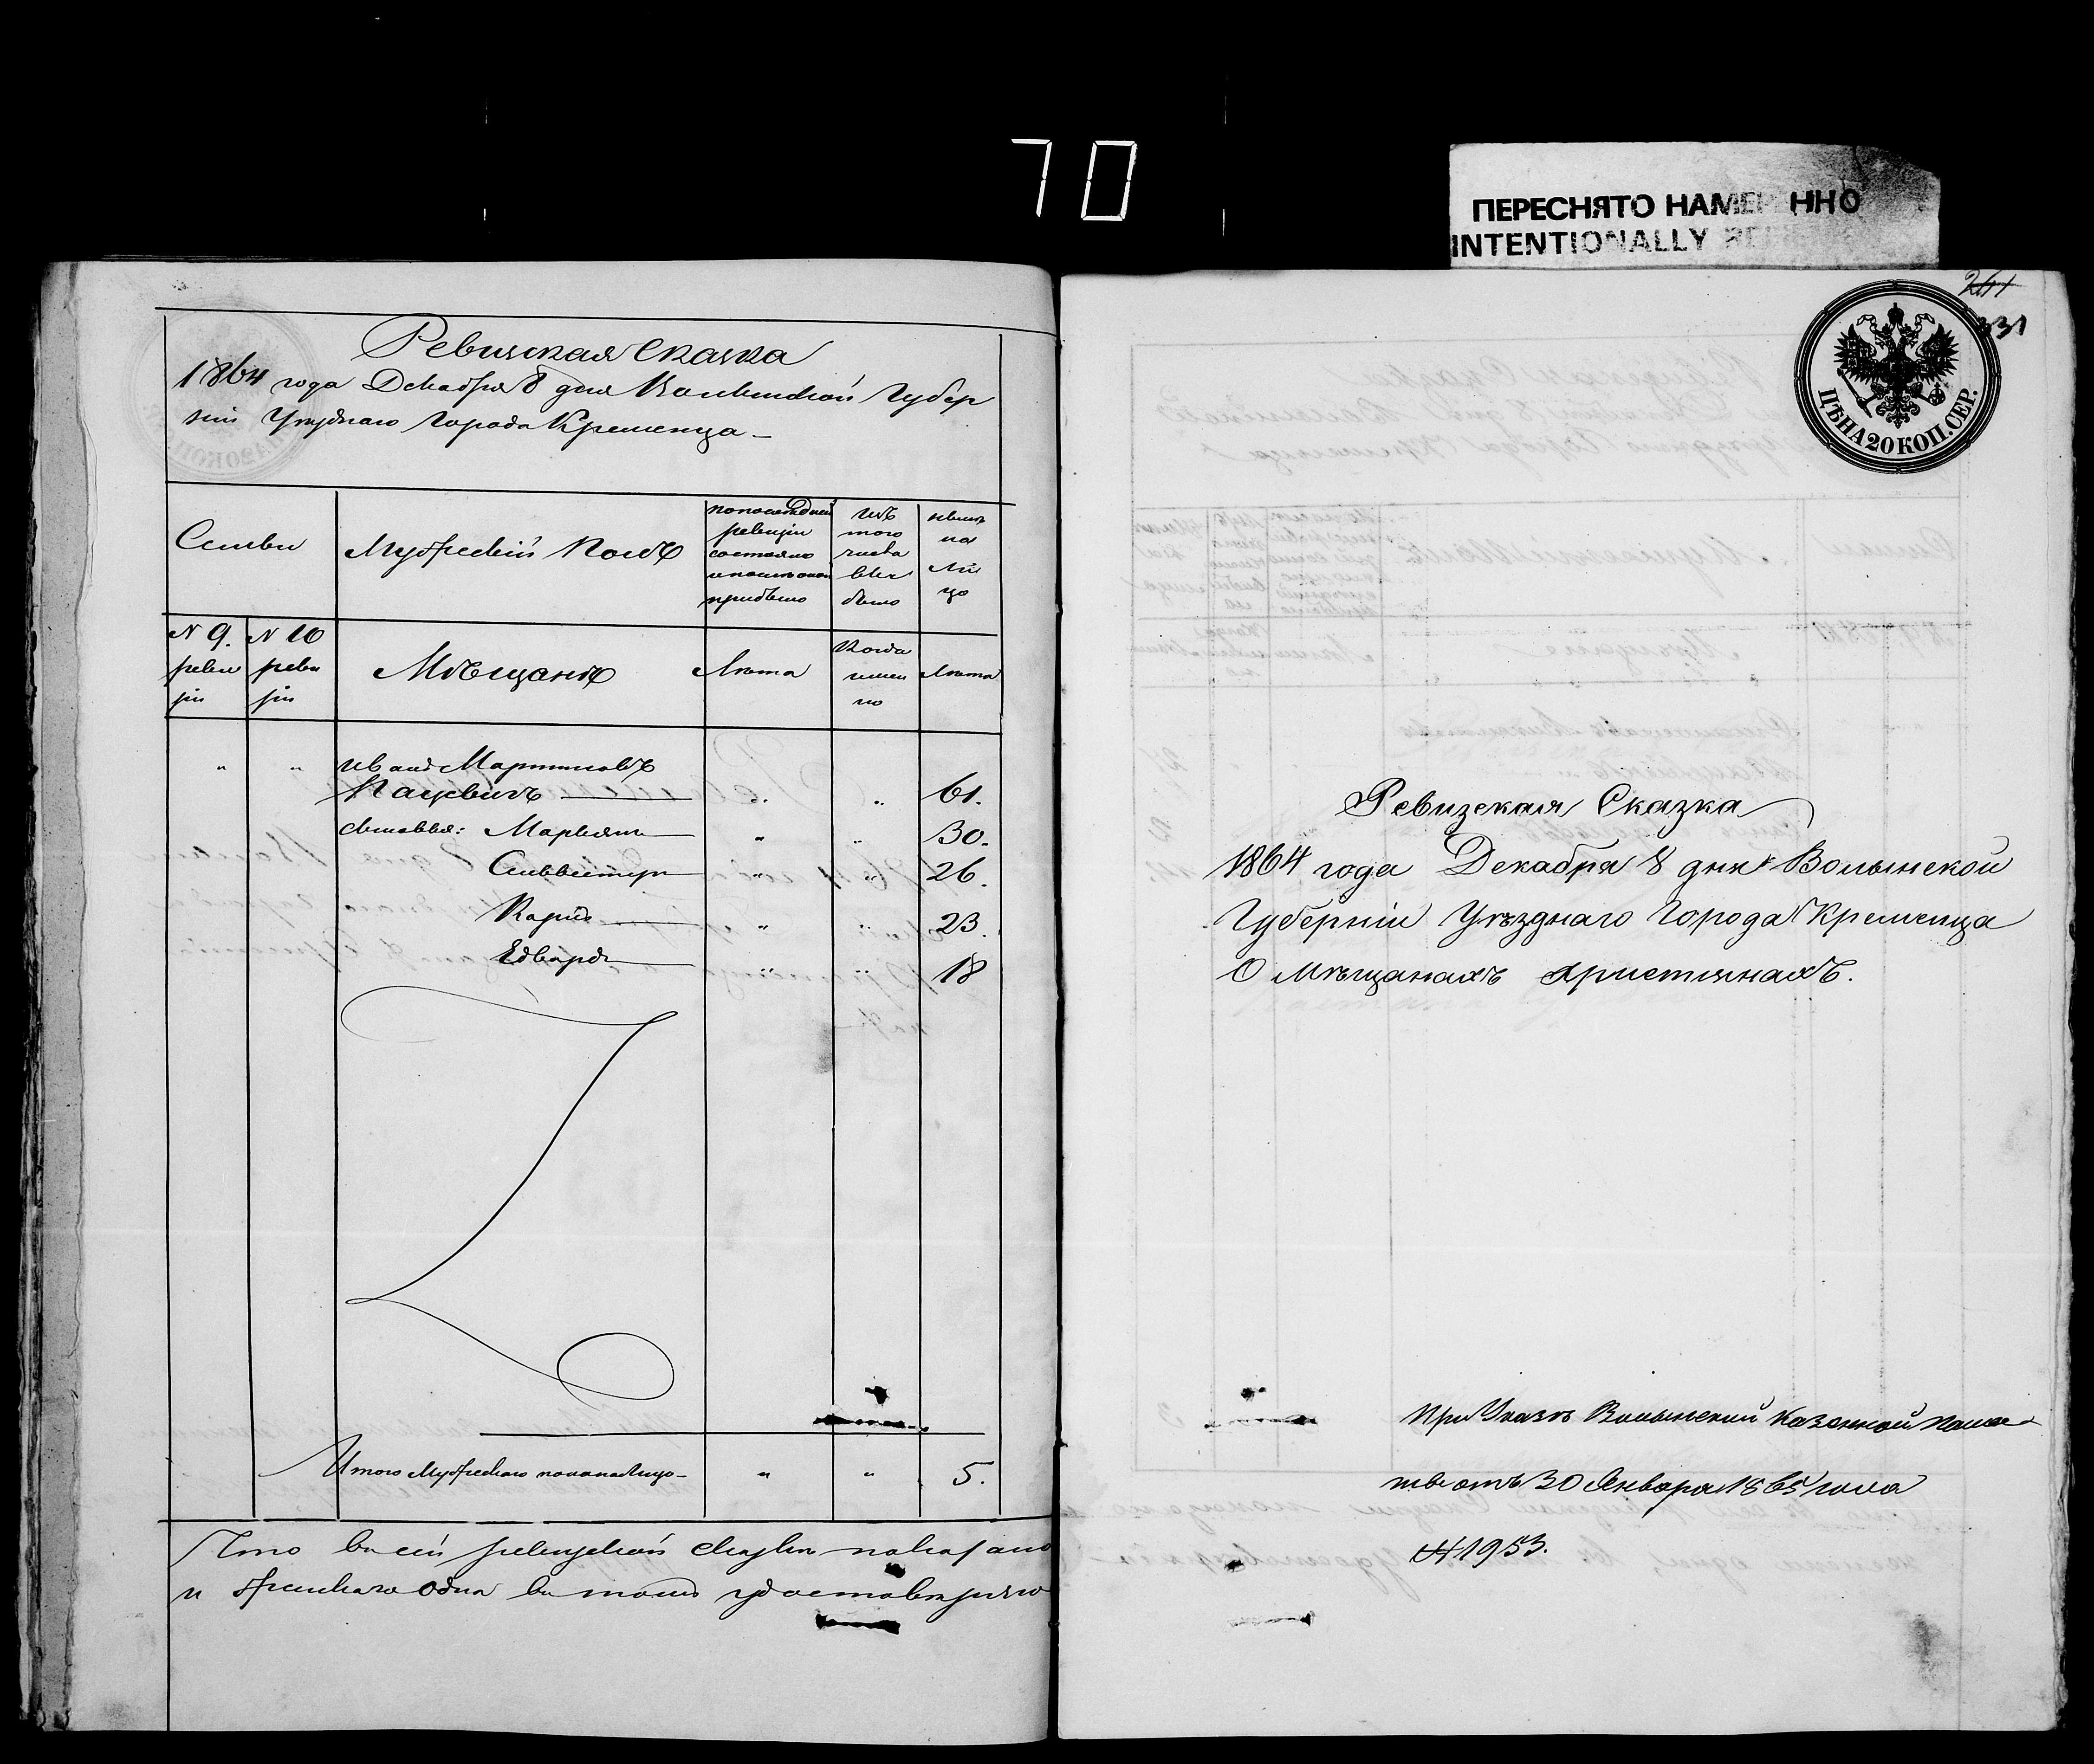 70
ПЕРЕСНЯТО НАМЕР ННО
INTENTIONALLY
Ревизская Сказка
1864 года Декабря 8 дня Волынской Губер
ніи Уѣзднаго Города Кременца
Семьи
Мужескій Полъ
по последней
ревизіи
состояло
и после оной
прибыло
изъ
того
числа
вы
было
нынѣ
на
ли
цо
№ 9.
реви
зіи
№ 10
реви
зіи
Мѣщанѣ
Лѣта
Когда
имен
но
Лѣта
" " Иванъ Мартиновъ
Пацевичъ " " 61.
сыновья: Марьянъ " " 30.
Сильвестръ " " 26.
Карлъ " " 23.
Едвардъ " " 18
Итого Мужескаго пола на лицо " " 5.
Что въ сей ревизской сказки показано
и женскаго одна въ томъ удостовѣряю
241
331
ЦѢНА 20 КОП. СЕР.
Ревизская Сказка
1864 года Декабря 8 дня Волынской
Губерніи Уѣзднаго Города Кременца
О Мѣщанахъ христіянахъ.
При Указѣ Волынский казенной пала
ты отъ 30 Января 1865 года
№ 1953.